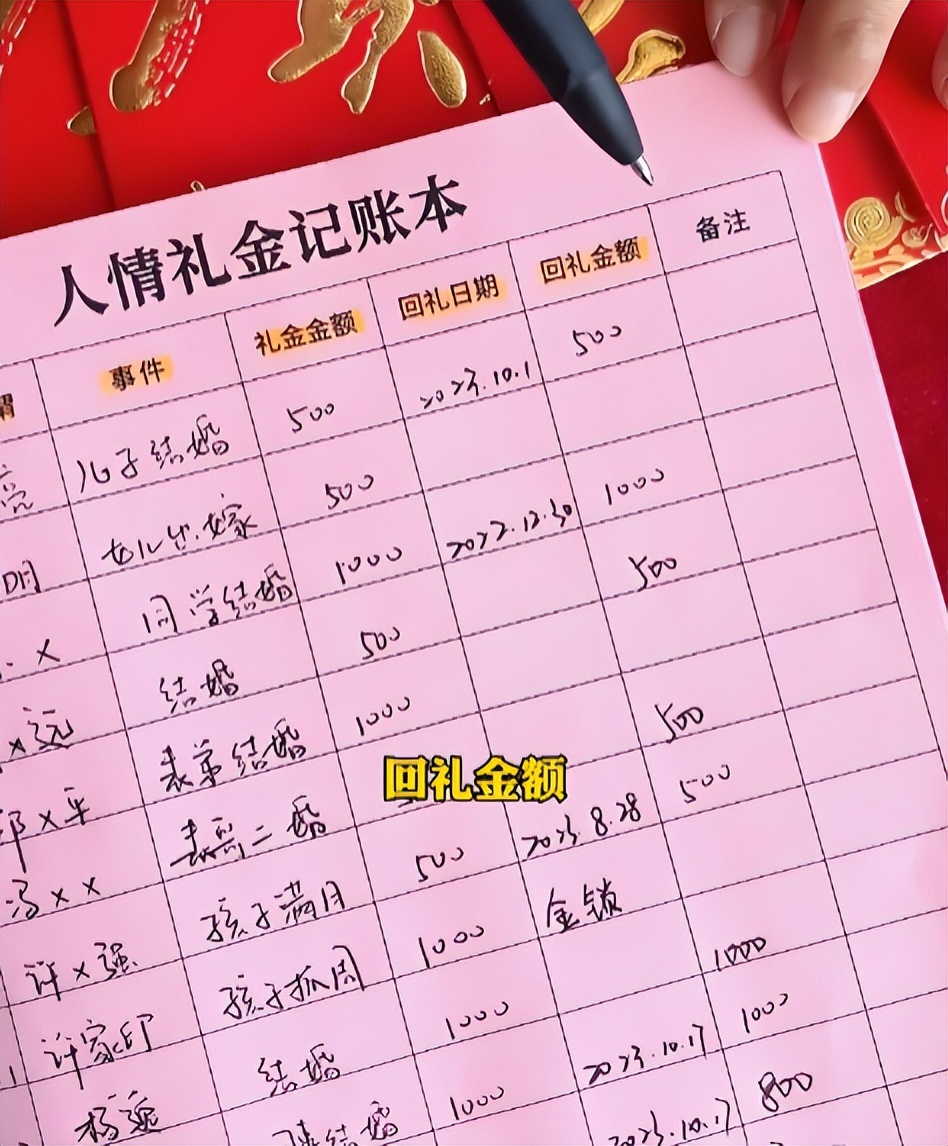 人情礼金记账本
事件 礼金金额 回礼日期 回礼金额 备注
亮 儿子结婚 500 2023.10.1 500
明 女儿出嫁 500
x 同学结婚 1000 2022.12.30 1000
x远 结婚 500 500
x平 表弟结婚 1000
冯xx 表哥二婚 500
回礼金额
许x强 孩子满月 500 2023.8.28 500
许家印 孩子抓周 1000 金锁
杨 结婚 1000 1000
结婚 1000 2023.10.17 1000
2023.10.17 800